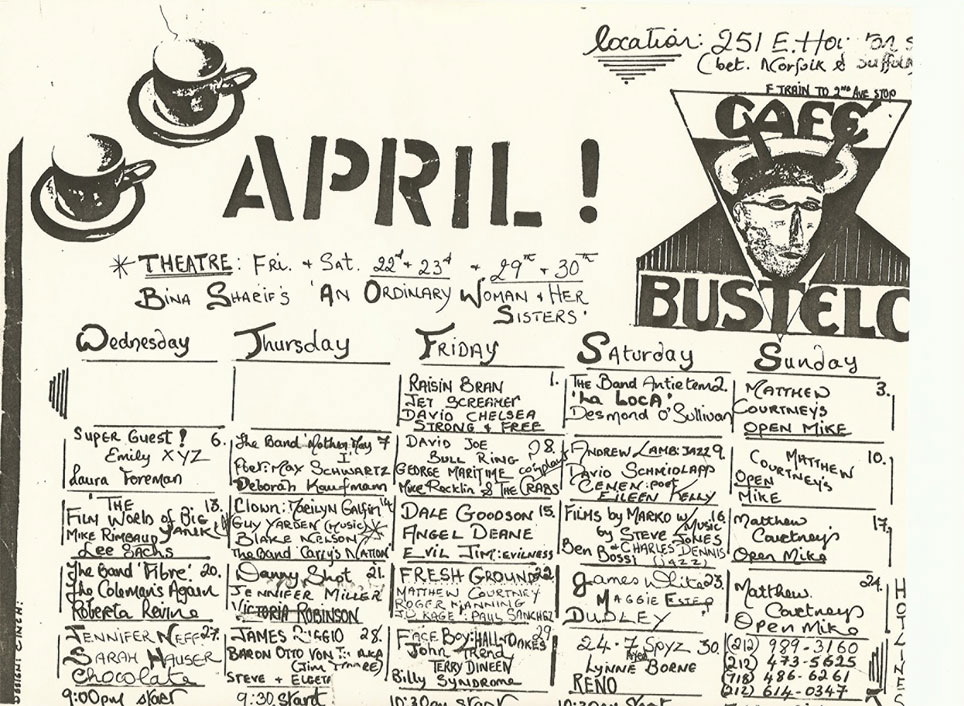 location: 251 E. Hou
(bet. Norfolk & Suffolk
F TRAIN TO 2ND AVE STOP
CAFÉ
BUSTELO
APRIL!
* THEATRE: FRI. + SAT. 22d + 23d + 29th + 30th
BINA SHARIF'S 'AN ORDINARY WOMAN + HER
SISTERS'
Wednesday
Thursday
FRIDAY
SATURDAY
Sunday
1.
RAISIN BRAN
JET SCREAMER
DAVID CHELSEA
STRONG & FREE
2.
THE Band Antietem
'La LOCA'
Desmond O'Sullivan
3.
MATTHEW
COURTNEY'S
OPEN MIKE
6.
SUPER GUEST!
Emily XYZ
Laura Foreman
7
The Band 'Mother May
I'
Poet: Max SCHWARTZ
Deborah Kaufmann
8.
DAVID JOE
BULL RING
GEORGE MARITIME
Mike Rocklin & THE CRABS
9.
ANDREW LAMB: JAZZ
DAVID SCHMIOLAPP
CENEN: poet
EILEEN KELLY
10.
MATTHEW
COURTNEY'S
OPEN
MIKE
13.
'THE
FILM WORLD OF BIG
MIKE RIMBAUD
Lee Sachs
14
Clown: Marilyn Galfin
GUY YARDEN (MUSIC)
BLAKE NELSON
The Band 'Carry's NATION'
15.
DALE GOODSON
ANGEL DEANE
EVIL JIM: EVILNESS
16.
FILMS by MARKO w/ Music
by STEVE JONES
Ben Bossi & CHARLES DENNIS
(JAZZ)
17.
Matthew
Courtney's
Open Mike
20.
The Band 'Fibre'
The Coleman's Again
Roberta Levine
21.
Danny Shot
JENNIFER MILLER
VICTORIA ROBINSON
22.
FRESH GROUND
MATTHEW COURTNEY
ROGER MANNING
J.D RAGE: PAUL SANCHEZ
23.
James White
MAGGIE ESTEP
DUDLEY
24.
Matthew
Courtney's
Open Mike
27.
JENNIFER NEFF
SARAH HAUSER
Chocolate
28.
JAMES RUGGIO
BARON OTTO VON T: A.K.A
STEVE +
29
FACE BOY: HALL + OAKES
John Trend
TERRY DINEEN
Billy SYNDROME
30.
24-7 SPYZ
LYNNE BORNE
RENO
(212) 989-3160
(212) 473-5625
(718) 486-6261
(212) 614-0347
HOTLINES
9:00pm start
9:30 Start
10:30pm start
10:30pm start
DESIGN: